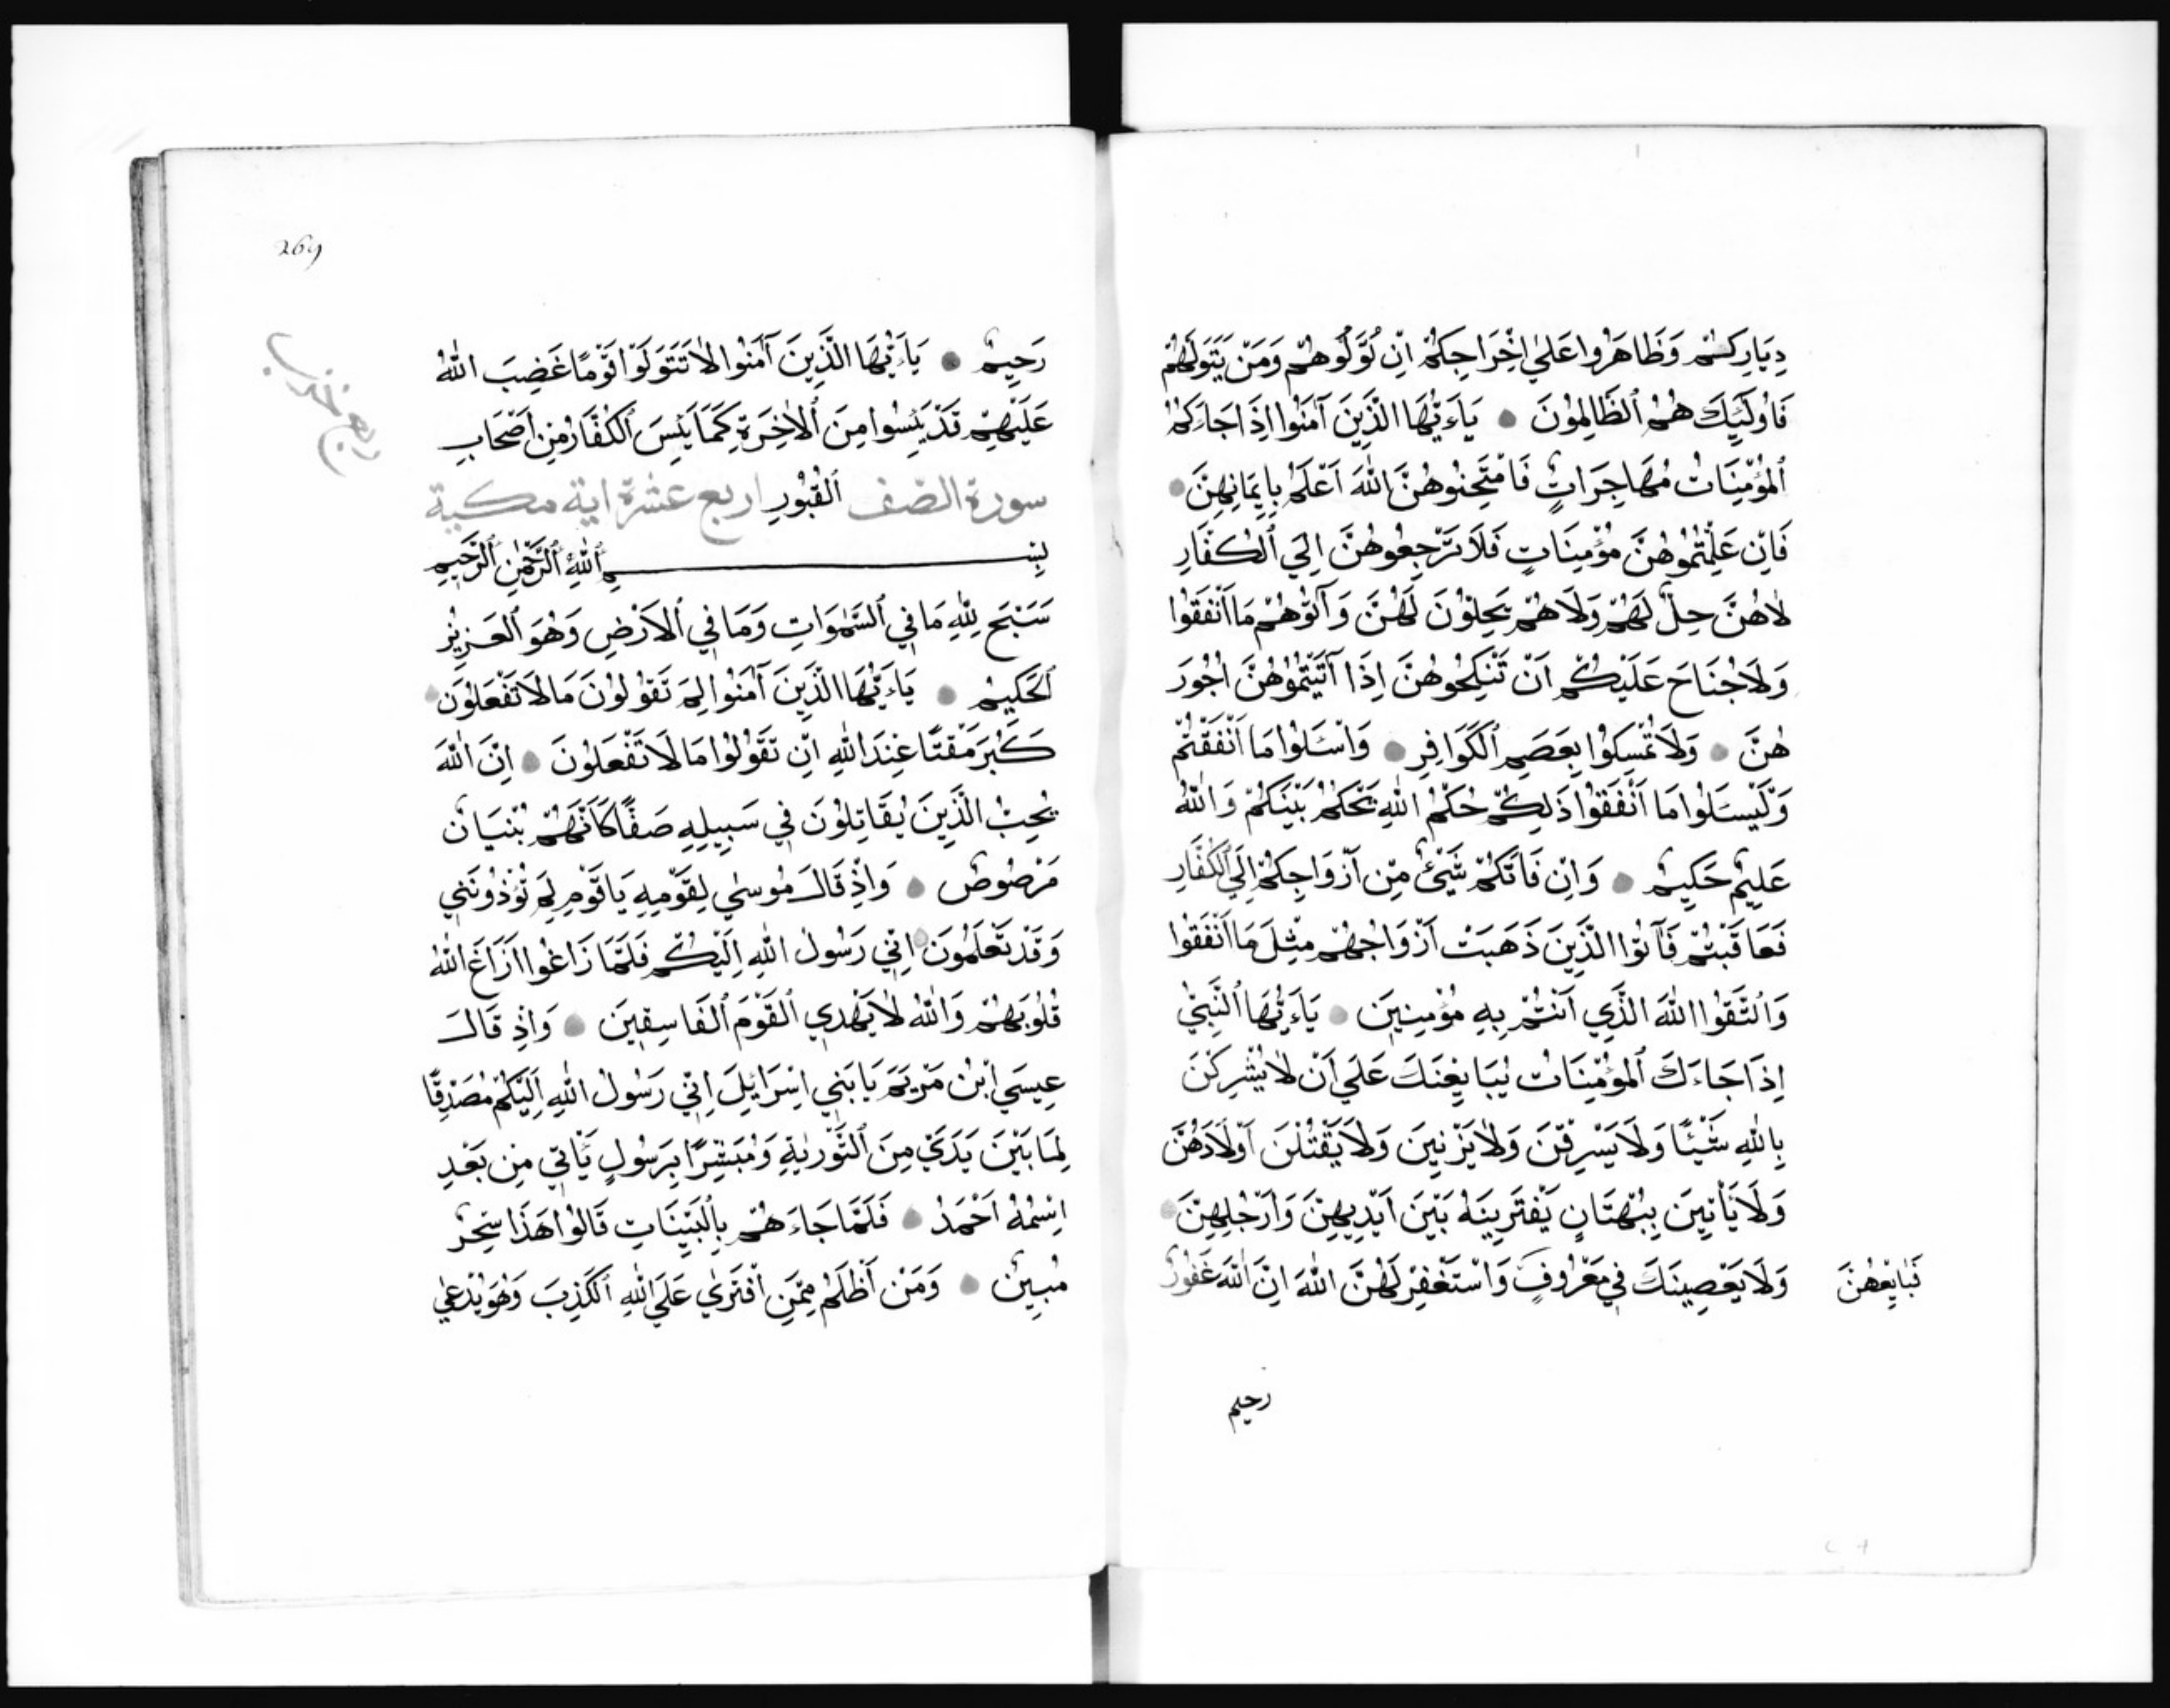 دِيَارِكُمْ وَظَاهَرُوا عَلَىٰ اِخْرَاجِكُمْ اَنْ تَوَلَّوْهُمْ وَمَنْ يَتَوَلَّهُمْ
فَاُولَٓئِكَ هُمُ الظَّالِمُونَ يَٓاءَيُّهَا الَّذِينَ آمَنُوا اِذَا جَاءَكُمْ
الْمُؤْمِنَاتُ مُهَاجِرَاتٍ فَامْتَحِنُوهُنَّ اللّٰهُ اَعْلَمُ بِاِيمَانِهِنَّ
فَاِنْ عَلِمْتُمُوهُنَّ مُؤْمِنَاتٍ فَلَا تَرْجِعُوهُنَّ اِلَي الْكُفَّارِ
لَاهُنَّ حِلٌّ لَهُمْ وَلَاهُمْ يَحِلُّونَ لَهُنَّ وَآتُوهُمْ مَا اَنْفَقُوا
وَلَاجُنَاحَ عَلَيْكُمْ اَنْ تَنْكِحُوهُنَّ اِذَا آتَيْتُمُوهُنَّ اُجُورَ
هُنَّ وَلَا تُمْسِكُوا بِعِصَمِ الْكَوَافِرِ وَاسْئَلُوا مَا اَنْفَقْتُمْ
وَلْيَسْئَلُوا مَا اَنْفَقُوا ذَلِكُمْ حُكْمُ اللّٰهِ يَحْكُمُ بَيْنَكُمْ وَاللّٰهُ
عَلِيمٌ حَكِيمٌ وَاِنْ فَاتَكُمْ شَيْئٌ مِنْ اَزْوَاجِكُمْ اِلَي الْكُفَّارِ
فَعَاقَبْتُمْ فَآتُوا الَّذِينَ ذَهَبَتْ اَزْوَاجُهُمْ مِثْلَ مَا اَنْفَقُوا
وَاتَّقُوا اللّٰهَ الَّذِي اَنْتُمْ بِهِ مُؤْمِنِينَ يَٓاءَيُّهَا النَّبِيُّ
اِذَا جَاءَكَ الْمُؤْمِنَاتُ يُبَايِعْنَكَ عَلَي اَنْ لَا يُشْرِكْنَ
بِاللّٰهِ شَيْئًا وَلَا يَسْرِقْنَ وَلَا يَزْنِينَ وَلَا يَقْتُلْنَ اَوْلَادَهُنَّ
وَلَا يَأْتِينَ بِبُهْتَانٍ يَفْتَرِينَهُ بَيْنَ اَيْدِيهِنَّ وَاَرْجُلِهِنَّ
وَلَا يَعْصِينَكَ فِي مَعْرُوفٍ وَاسْتَغْفِرْ لَهُنَّ اللّٰهَ اِنَّ اللّٰهَ غَفُورٌ
فَبَايِعْهُنَّ
رحيم
269
رَحِيمٌ يَٓاءَيُّهَا الَّذِينَ آمَنُوا لَا تَتَوَلَّوْا قَوْمًا غَضِبَ اللّٰهُ
عَلَيْهِمْ قَدْ يَئِسُوا مِنَ الْاٰخِرَةِ كَمَا يَئِسَ الْكُفَّارُ مِنْ اَصْحَابِ
سورة الصف الْقُبُورِ اربع عشرة اية مكية
بِسْمِ اللّٰهِ الرَّحْمٰنِ الرَّحِيمِ
سَبَّحَ لِلّٰهِ مَا فِي السَّمٰوَاتِ وَمَا فِي الْاَرْضِ وَهُوَ الْعَزِيزُ
الْحَكِيمُ يَٓاءَيُّهَا الَّذِينَ آمَنُوا لِمَ تَقُولُونَ مَا لَا تَفْعَلُونَ
كَبُرَ مَقْتًا عِنْدَ اللّٰهِ اَنْ تَقُولُوا مَا لَا تَفْعَلُونَ اِنَّ اللّٰهَ
يُحِبُّ الَّذِينَ يُقَاتِلُونَ فِي سَبِيلِهِ صَفًّا كَاَنَّهُمْ بُنْيَانٌ
مَرْصُوصٌ وَاِذْ قَالَ مُوسٰي لِقَوْمِهِ يَا قَوْمِ لِمَ تُؤْذُونَنِي
وَقَدْ تَعْلَمُونَ اَنِّي رَسُولُ اللّٰهِ اِلَيْكُمْ فَلَمَّا زَاغُوا اَزَاغَ اللّٰهُ
قُلُوبَهُمْ وَاللّٰهُ لَا يَهْدِي الْقَوْمَ الْفَاسِقِينَ وَاِذْ قَالَ
عِيسَي ابْنُ مَرْيَمَ يَا بَنِي اِسْرَائِيلَ اِنِّي رَسُولُ اللّٰهِ اِلَيْكُمْ مُصَدِّقًا
لِمَا بَيْنَ يَدَيَّ مِنَ التَّوْرٰيةِ وَمُبَشِّرًا بِرَسُولٍ يَأْتِي مِنْ بَعْدِ
اسْمُهُ اَحْمَدُ فَلَمَّا جَاءَهُمْ بِالْبَيِّنَاتِ قَالُوا هَذَا سِحْرٌ
مُبِينٌ وَمَنْ اَظْلَمُ مِمَّنِ افْتَرٰي عَلَي اللّٰهِ الْكَذِبَ وَهُوَ يُدْعٰي